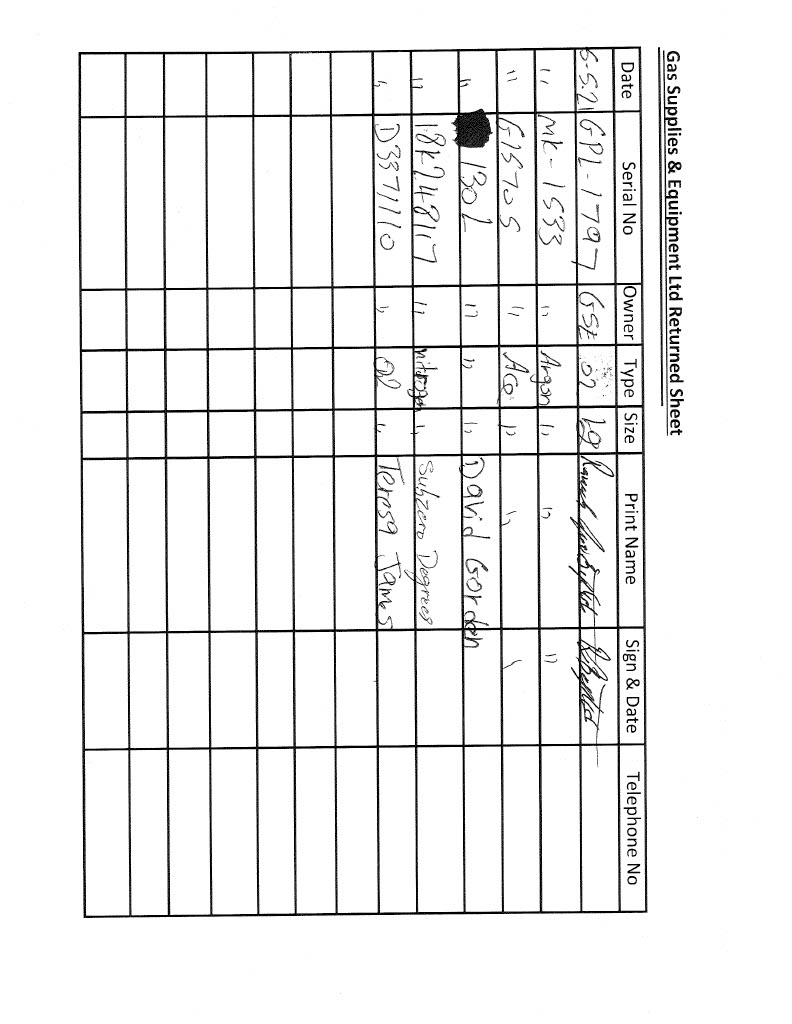 Gas Supplies & Equipment Ltd Returned Sheet
Date Serial No Owner Type Size Print Name Sign & Date Telephone No
5-5.21 GPL-1797 GSE 02 Lg
" MK-1533 " Argon " " "
" G1570S " Ace " "
" 130L " " " David Gorden
" 18K248117 " nitrogen " Subzero Degrees
" D3371110 " O2 " Teresa James